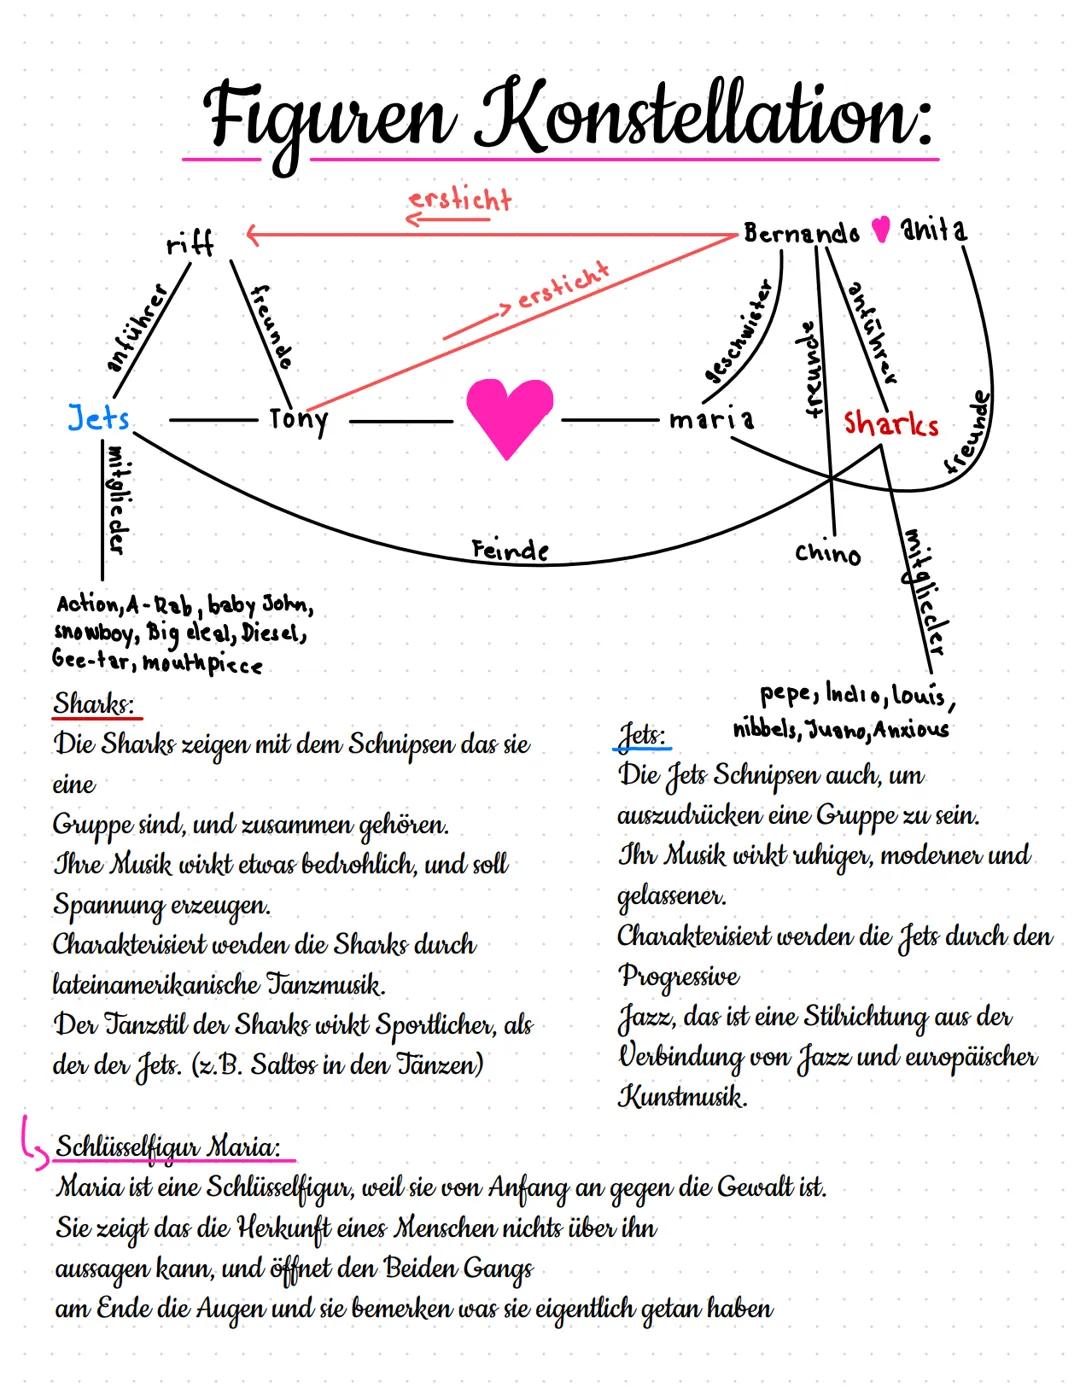 Figuren Konstellation:
ersticht
riff
Bernando anita
anführer
freunde
ersticht
geschwister
freunde
anführer
freunde
Jets
Tony
maria
Sharks
mitglieder
Feinde
chino
mitglieder
Action, A-Rab, baby John,
snowboy, Big deal, Diesel,
Gee-tar, mouthpiece
pepe, Indio, Louis,
nibbels, Juano, Anxious
Sharks:
Die Sharks zeigen mit dem Schnipsen das sie
eine
Gruppe sind, und zusammen gehören.
Ihre Musik wirkt etwas bedrohlich, und soll
Spannung erzeugen.
Charakterisiert werden die Sharks durch
lateinamerikanische Tanzmusik.
Der Tanzstil der Sharks wirkt Sportlicher, als
der der Jets. (z.B. Saltos in den Tänzen)
Jets:
Die Jets Schnipsen auch, um
auszudrücken eine Gruppe zu sein.
Ihr Musik wirkt ruhiger, moderner und
gelassener.
Charakterisiert werden die Jets durch den
Progressive
Jazz, das ist eine Stilrichtung aus der
Verbindung von Jazz und europäischer
Kunstmusik.
Schlüsselfigur Maria:
Maria ist eine Schlüsselfigur, weil sie von Anfang an gegen die Gewalt ist.
Sie zeigt das die Herkunft eines Menschen nichts über ihn
aussagen kann, und öffnet den Beiden Gangs
am Ende die Augen und sie bemerken was sie eigentlich getan haben